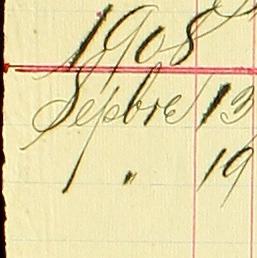 1908
Sepbre 13
" 19